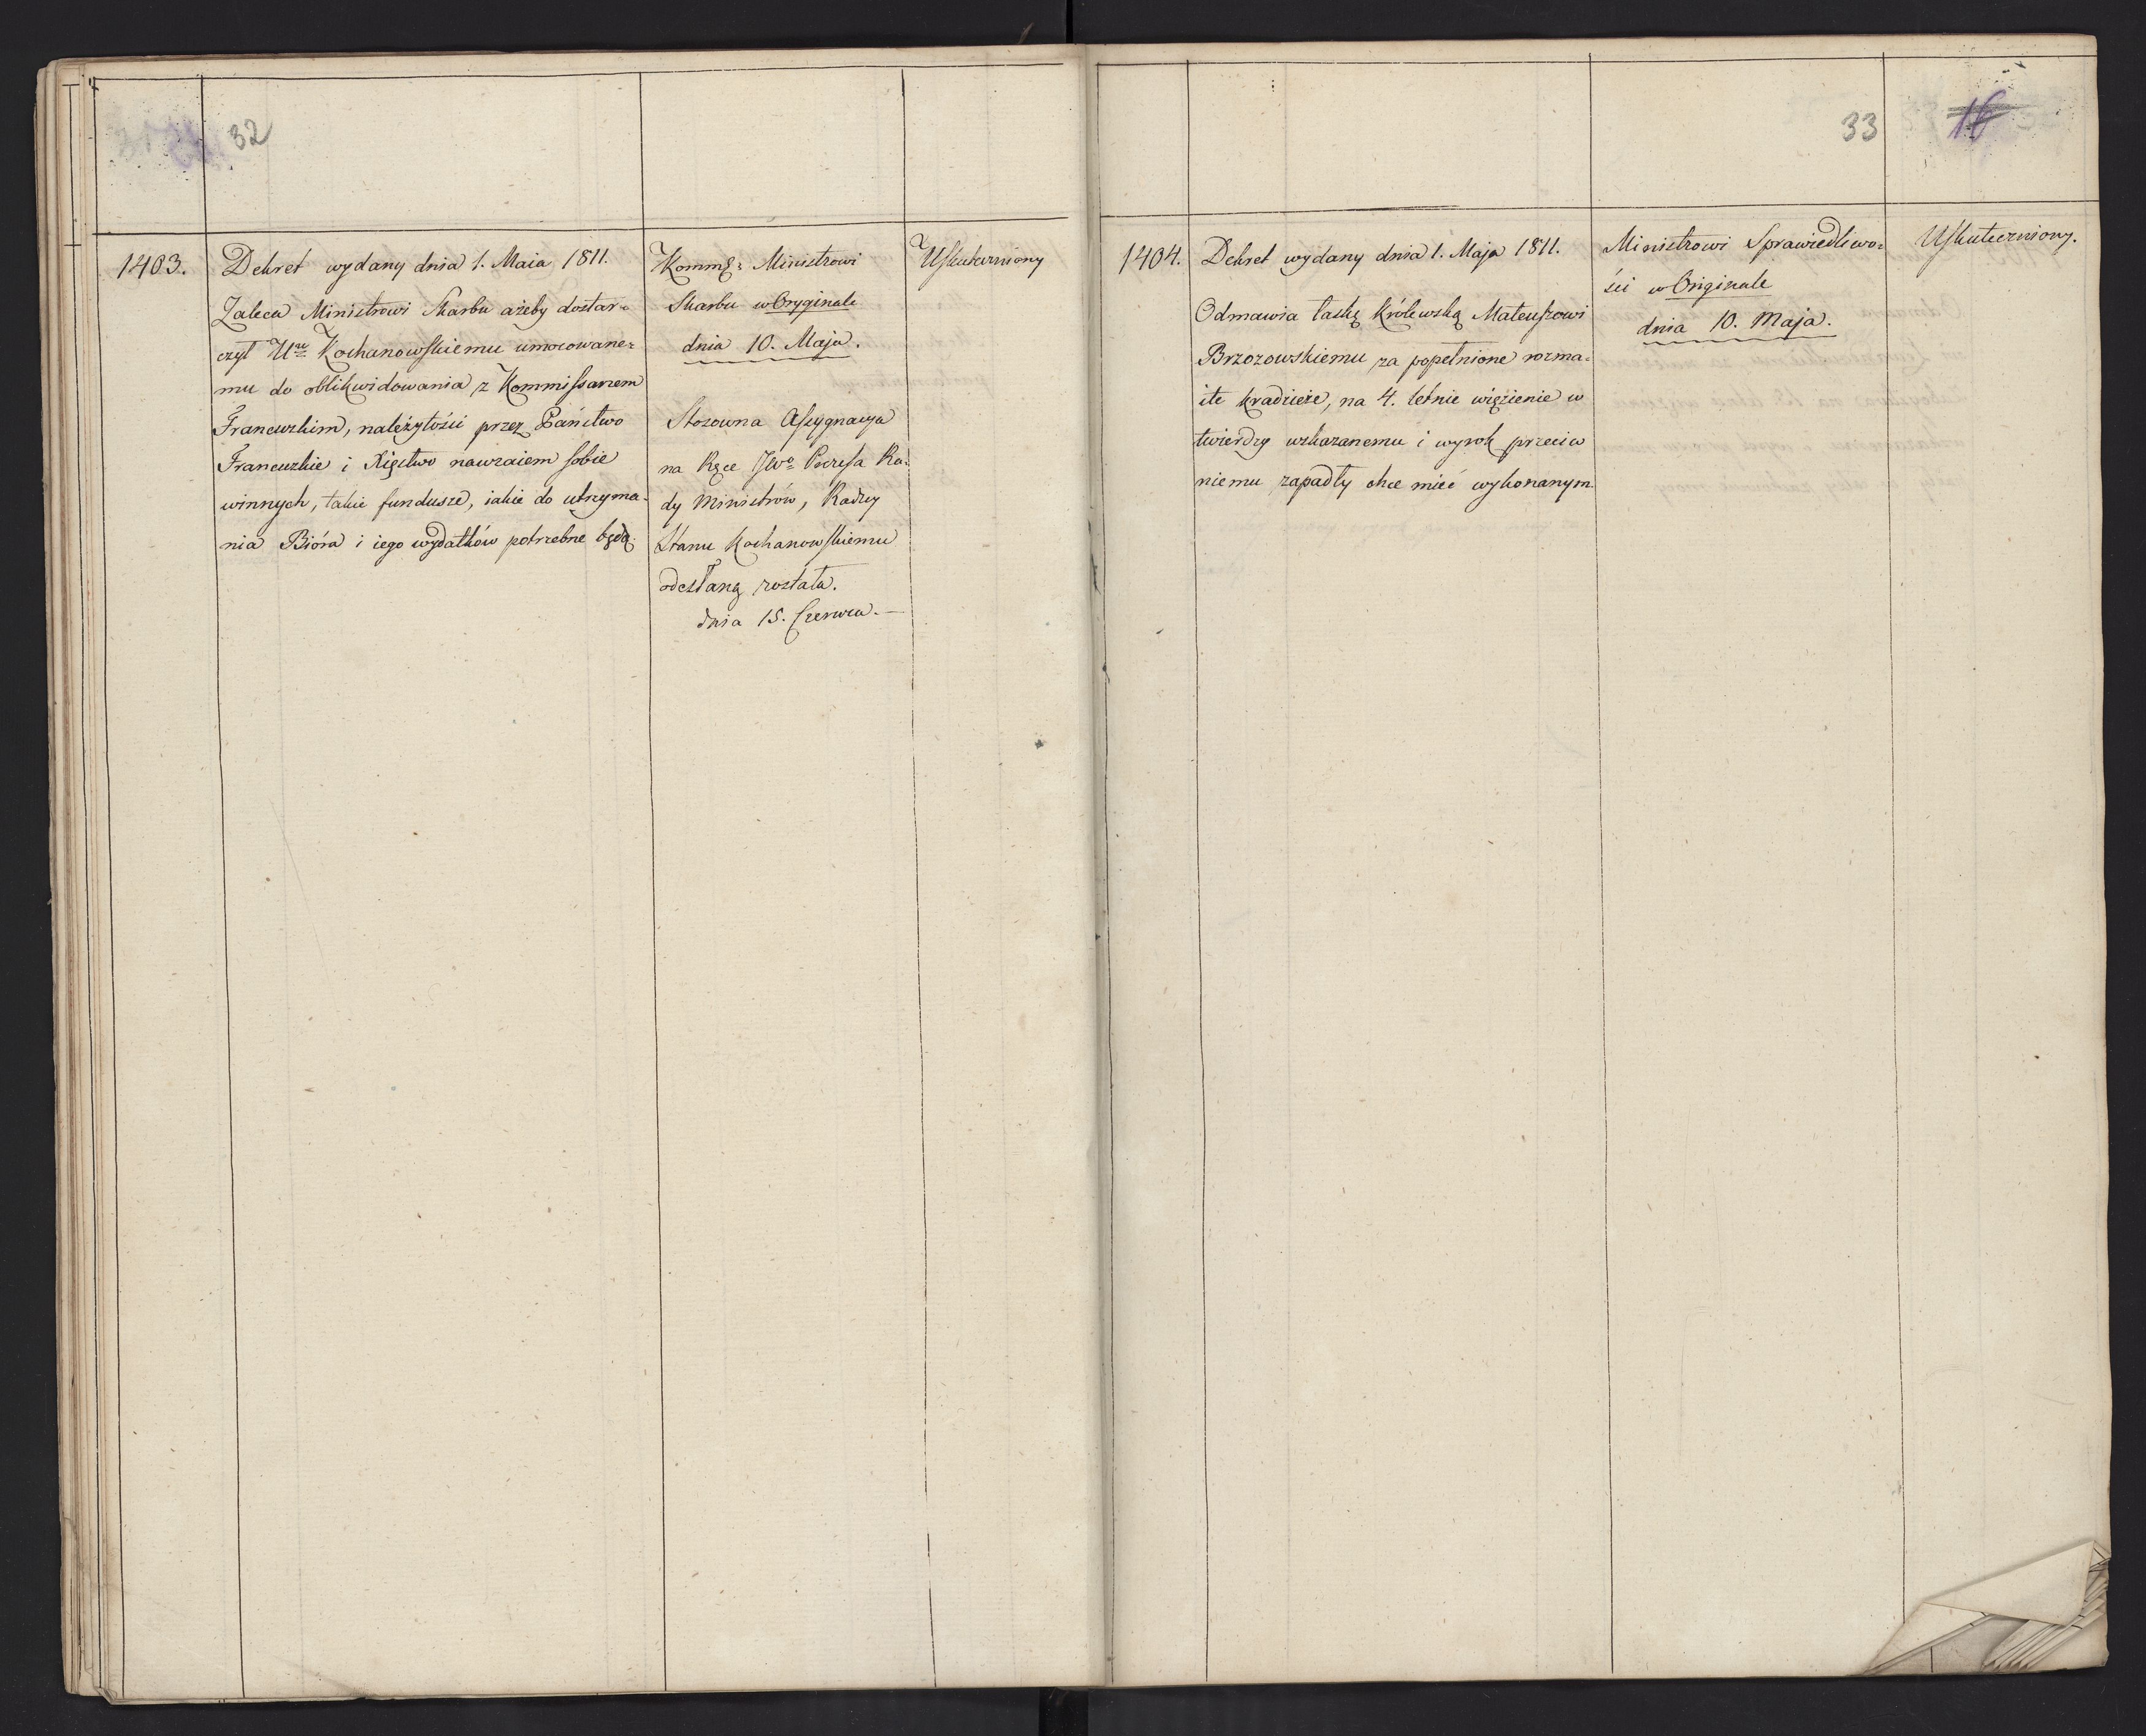 32
1403.
Dekret wydany dnia 1. Maia 1811.
Zaleca Ministrowi Skarbu ażeby dostar=
czył Ur̃u Kochanowskiemu umocowane=
mu do oblikwidowania z Kommissarzem
Francuzkim, należytości przez Państwo
Francuzkie i Xięstwo nawzaiem sobie
winnych, takie fundusze, iakie do utrzyma=
nia Bióra i iego wydatków potrzebne będą.
Ministrowi
Skarbu w Oryginale
dnia 10. Maja.
Stosowna Assygnacya
na Ręce JWo Prezesa Ra=
dy Ministrów, Radzcy
Stanu Kochanowskiemu
odesłaną została.
dnia 15. Czerwca.—
Uskuteczniony
33
16
1404.
Dekret wydany dnia 1. Maja 1811.
Odmawia łaskę Królewską Mateuszowi
Brzozowskiemu za popełnione rozma=
ite kradzieże, na 4. letnie więzienie w
twierdzy wskazanemu i wyrok przeciw
niemu zapadły chce mieć wykonanym
Ministrowi Sprawiedliwo=
ści w Originale
dnia 10. Maja.
Uskuteczniony.